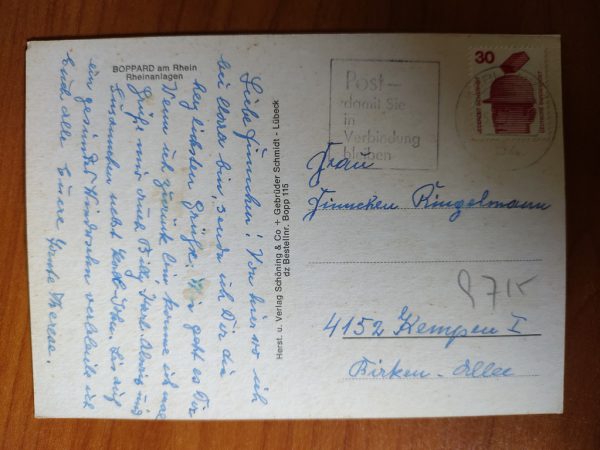 BOPPARD am Rhein
Rheinanlagen
Liebe Finnchen! Von hier wo ich
bei Clara bin, sende ich Dir die
herzlichsten Grüße. Wie geht es Dir
Wenn ich zurück bin komme ich mal
Grüße mir auch Billi, und
Zusammen nebst Bis auf
ein gesundes Wiedersehen verbleibe ich
Euch alle Euere Tante Therese.
Herst. u. Verlag Schöning & Co + Gebrüder Schmidt - Lübeck
dz Bestellnr. Bopp 115
Post-
damit Sie
in
Verbindung
bleiben
30
DEUTSCHE BUNDESPOST
Frau
Finnchen Ringelmann
4152 Kempen I
Birken-Allee